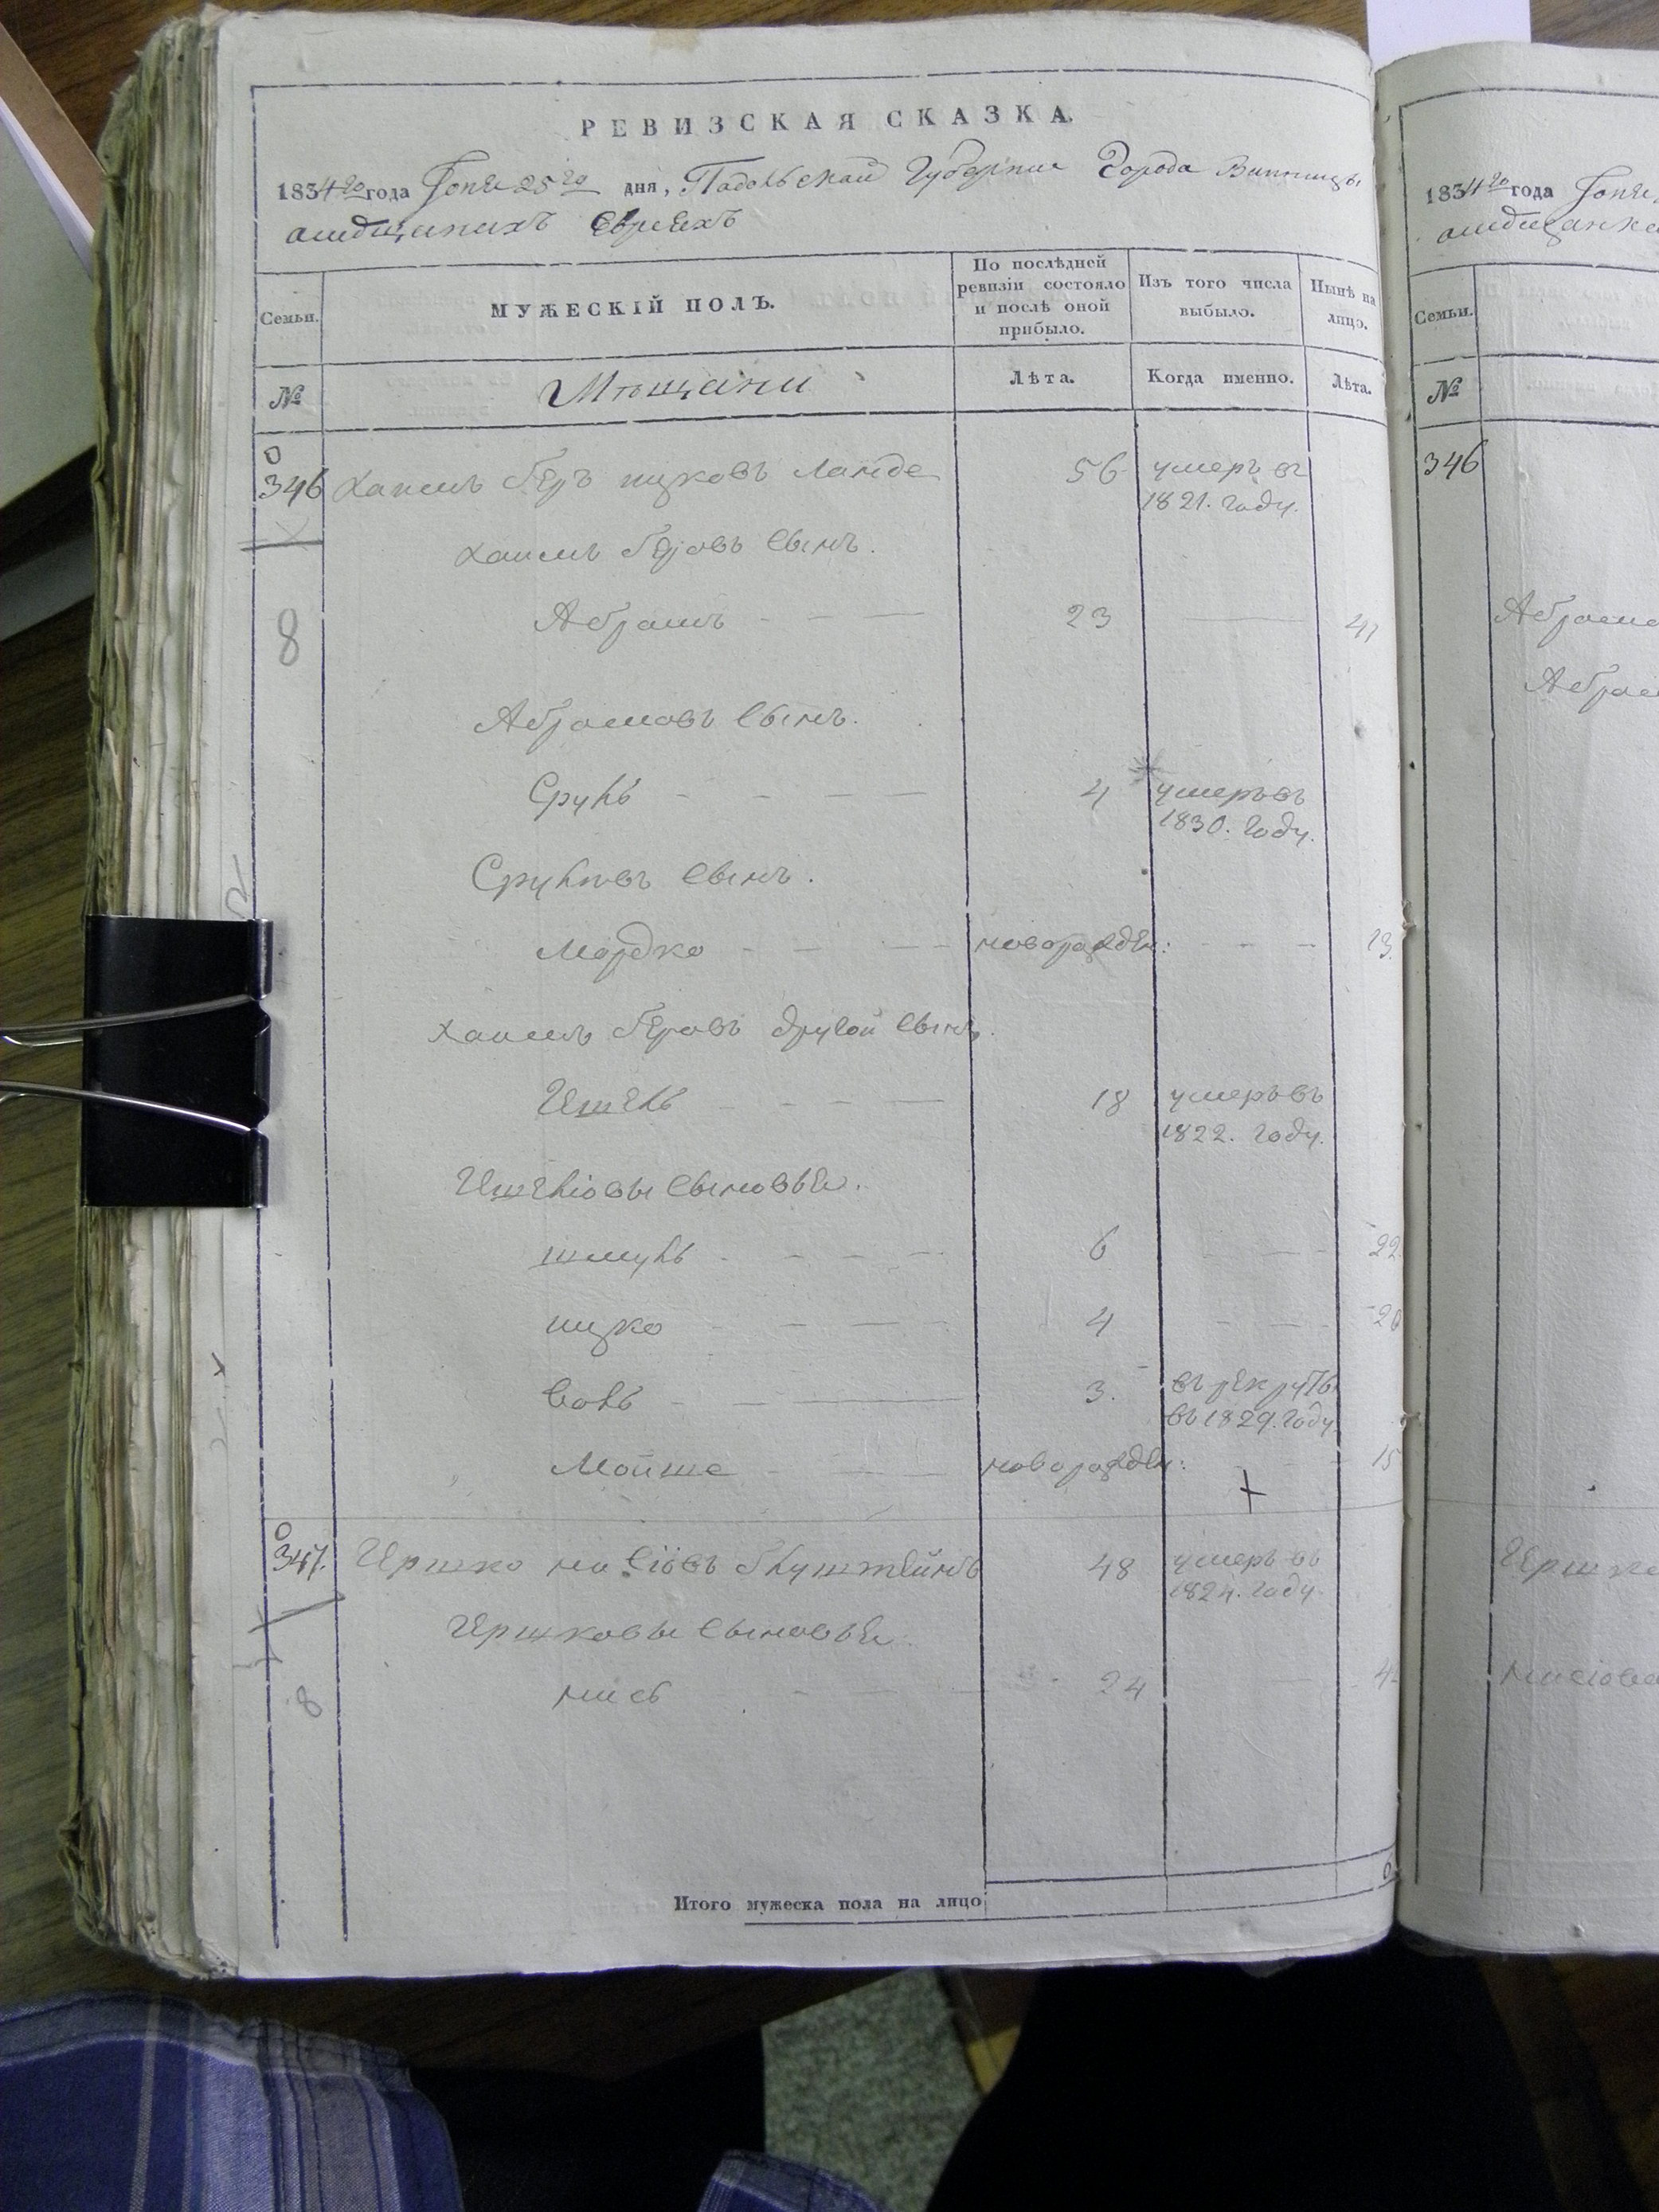 РЕВИЗСКАЯ СКАЗКА.
1834го года Іюня 25го дня, Падольской Губерніи Города Винницы
омѣщанихъ Евреехъ
Семьи.
МУЖЕСКІЙ ПОЛЪ.
По послѣдней ревизіи состояло и послѣ оной прибыло.
Изъ того числа выбыло.
Нынѣ на лицо.
№
Мѣщани
Лѣта.
Когда именно.
Лѣта.
346 Хаимъ Беръ ицковъ Ланде 56 умеръ въ
1821. году.
Хаимъ Беровъ сынъ.
8 Абрамъ 23 41
Абрамовъ сынъ.
Сруль 4 умеръ въ
1830. году.
Срулѣвъ сынъ.
Мордко новорожден: 13
Хаимъ Беровъ другой сынъ.
18 умеръ въ
1822. году.
сыновья.
шмуль 6 22
ицко 4 20
3. въ рекруты
въ 1829. году
Мойше новорожден: 15
347. Иршко 48 умеръ въ
1824. году.
Иршковы сыновья.
8 нись 24 4
Итого мужеска пола на лицо
1834го года Іюня
омѣщанка
Семьи.
№
346
Абрамо
Абрам
Иршко
нисіова